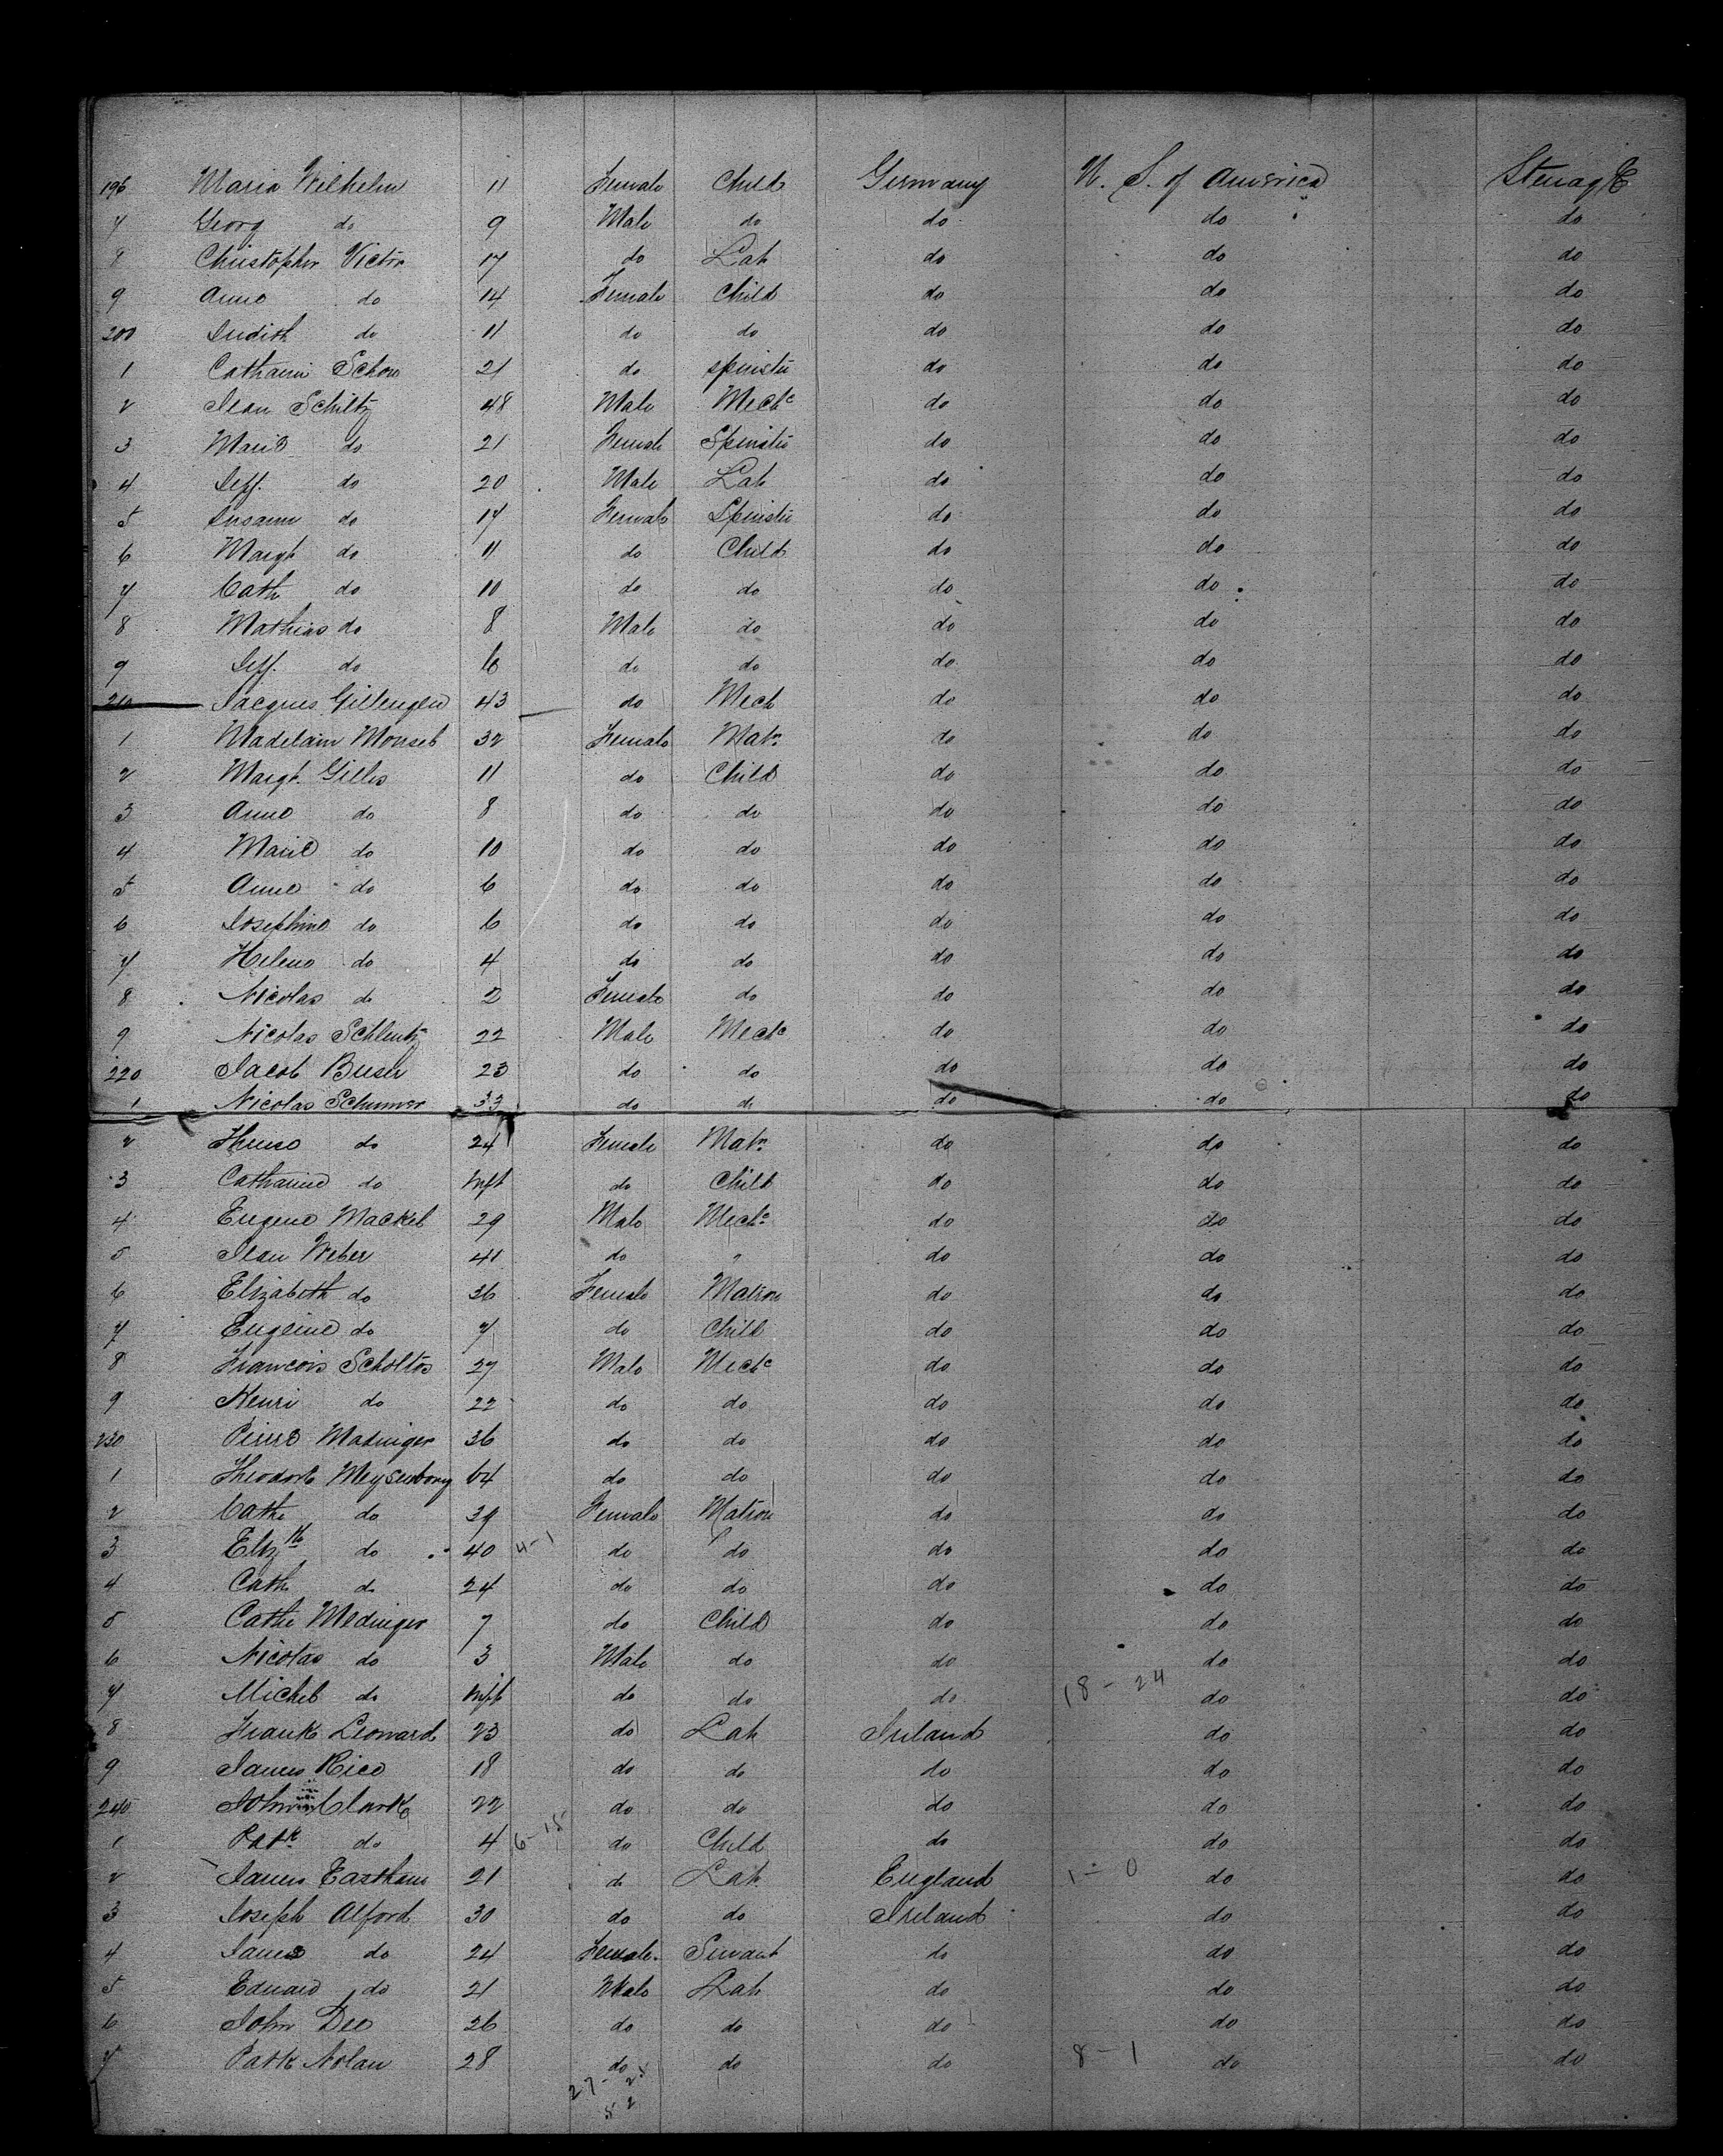 196 Maria Wilhelm 11 Female Child Germany U. S. of America Steerage
7 Georg do 9 Male do do do do
8 Christopher Victor 17 do Lab do do do
9 Anne do 14 Female Child do do do
200 Judith do 11 do do do do do
1 Catharin Schow 21 do spinstr do do do
2 Jean Schiltz 48 Male Mechc do do do
3 Marie do 21 Female Spinstr do do do
4 Jeff. do 20 Male Lab do do do
5 Susann do 17 Female Spinstr do do do
6 Margt do 11 do Child do do do
7 Cath do 10 do do do do do
8 Mathias do 8 Male do do do do
9 Jeff. do 6 do do do do do
210 Jacques Gillengen 43 do Mech do do do
1 Madelain Mouset 32 Female Matn do do do
2 Margt. Gilles 11 do Child do do do
3 Anne do 8 do do do do do
4 Marie do 10 do do do do do
5 Anne do 6 do do do do do
6 Josephine do 6 do do do do do
7 Helene do 4 do do do do do
8 Nicolas do 2 Female do do do do
9 Nicolas Schleutz 22 Male Mechc do do do
220 Jacob Busch 23 do do do do do
1 Nicolas Schumer 33 do do do do do
2 do 24 Female Matn do do do
3 Catharine do Inft do Child do do do
4 Eugene Mackel 29 Male Mechc do do do
5 Jean Weber 41 do " do do do
6 Elizabeth do 36 Female Matron do do do
7 Eugeine do 7 do Child do do do
8 Francois Scholtes 27 Male Mechc do do do
9 Henri do 22 do do do do do
230 Pierre Madinger 36 do do do do do
1 Theodore Meysenbourg 64 do do do do do
2 Cathe do 39 Female Matron do do do
3 Elizth do 40 4-1 do do do do do
4 Cath do 24 do do do do do
5 Cathe Medinger 7 do Child do do do
6 Nicolas do 3 Male do do do do
7 Michel do Inft do do do 18-24 do do
8 Frank Leonard 23 do Lab Ireland do do
9 James Rice 18 do do do do do
240 John Clark 22 do do do do do
1 Patk do 4 6-15 do Child do do do
2 James Eastham 21 do Lab England 1-0 do do
3 Joseph Alford 30 do do Ireland do do
4 Jane do 24 Female Servant do do do
5 Edward do 21 Male Lab do do do
6 John Dee 26 do do do do do
7 Patk Nolan 28 do do do 8-1 do do
27-25
5 2